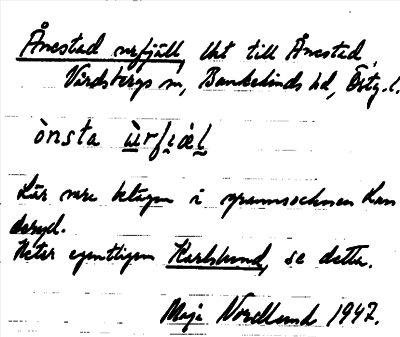 Ånestad urfjäll, lht till Ånestad,
Vårdsbergs sn, Bankekinds hd, Östg. l.
ònsta ùrfiäl
Lär vara belägen i grannsocknen Lan
deryd.
Heter egentligen Karlslund, se detta.
Maja Nordlund 1947.